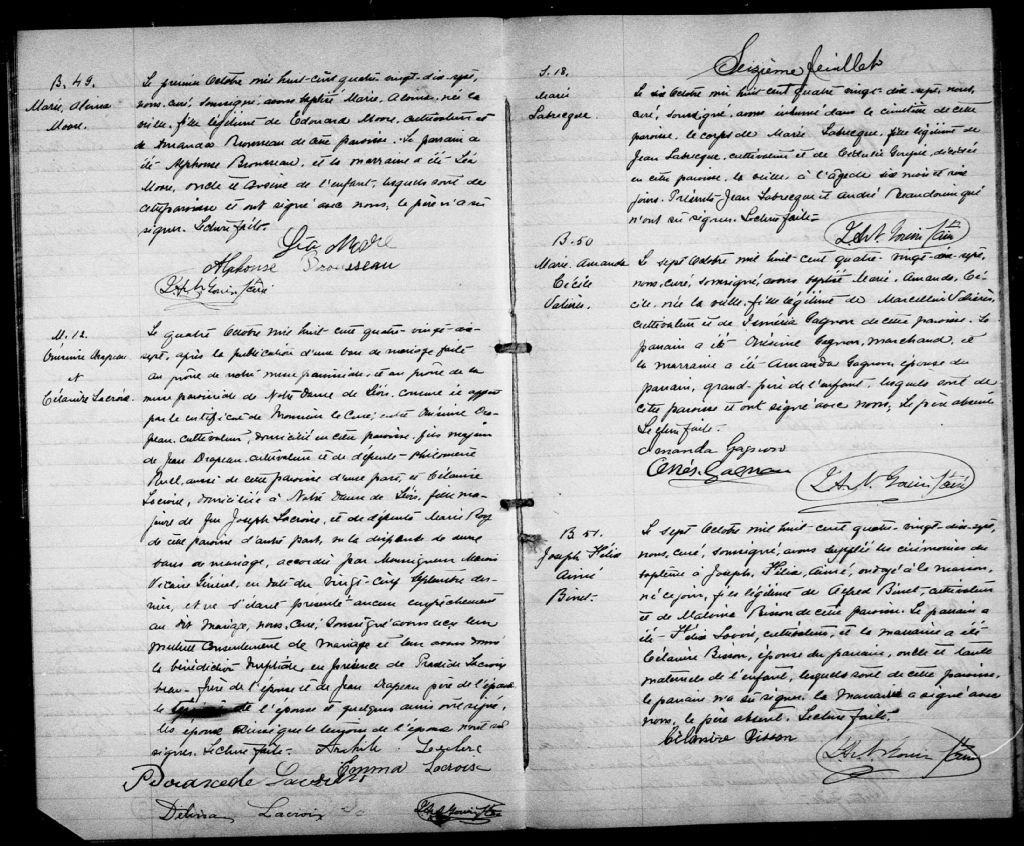 B. 49.
Marie Alvina
Moore.
Le premier Octobre mil huit-cent quatre vingt-dix-sept,
nous, curé, soussigné, avons baptisé Marie, Alvina, née la
veille, fille légitime de Edouard Moore, cultivateur et
de Amanda Brousseau de cette paroisse. Le parrain a
été Alphonse Brousseau, et la marraine a été Léa
Moore, oncle et cousine de l'enfant, lesquels sont de
cette paroisse et ont signé avec nous, le père n'a su
signer. Lecture faite.
Léa More
Alphonse Brousseau
M. 12.
Drapeau
et
Célanire Lacroix.
Le quatre Octobre mil huit cent quatre vingt dix
sept, après la publication d'un ban de mariage faite
au prône de notre messe paroissiale, et au prône de la
messe paroissiale de Notre Dame de Lévis, comme il appert
par le certificat de Monsieur le Curé, entre
cultivateur, domicilié en cette paroisse, fils majeur
de Jean Drapeau, cultivateur et de défunte Philomène
aussi de cette paroisse d'une part, et Célanire
Lacroix, domiciliée à Notre Dame de Lévis, fille ma-
jeure de feu Joseph Lacroix, et de défunte Marie Roy
de cette paroisse d'autre part, vu la dispense de deux
bans de mariage, accordée par Monseigneur Marois
Vicaire Général, en date du vingt-cinq Septembre der-
nier, et ne s'étant présenté aucun empêchement
au dit mariage, nous, Curé, soussigné avons reçu leur
mutuel consentement de mariage et leur avons donné
la bénédiction nuptiale en présence de Lacroix
beau-frère de l'épouse et de Jean Drapeau père de l'époux
de l'épouse et quelques amis ont signé,
les époux ainsi que le témoin de l'époux n'ont su
signer. Lecture faite. Leclerc
Emma Lacroix
Delvina Lacroix
Seizième feuillet
S. 18.
Marie
Labrecque.
Le six Octobre mil huit cent quatre vingt-dix-sept, nous,
curé, soussigné, avons inhumé dans le cimetière de cette
paroisse, le corps de Marie Labrecque, fille légitime de
Jean Labrecque, cultivateur et de décédée
en cette paroisse, la veille à l'âge de six mois et
jours. Présents Jean Labrecque et André Beaudoin qui
n'ont su signer. Lecture faite.
B. 50
Marie. Amanda
Cécile
Valières.
Le sept Octobre mil huit cent quatre-vingt-dix-sept,
nous, curé, soussigné, avons baptisé Marie, Amanda, Cé-
cile, née la veille, fille légitime de Marcellin Valières,
cultivateur et de Gagnon de cette paroisse. Le
parrain a été Onésime Gagnon, marchand, et
la marraine a été Amanda Gagnon, épouse du
parrain, grand-père de l'enfant, lesquels sont de
cette paroisse et ont signé avec nous, le père absent.
Lecture faite.
Amanda Gagnon
Onés. Gagnon
B. 51.
Joseph Félix
Aimé
Binet.
Le sept Octobre mil huit cent quatre-vingt-dix-sept,
nous, curé, soussigné, avons suppléé les cérémonies du
baptême à Joseph, Félix, Aimé, ondoyé à la maison,
né ce jour, fils légitime de Alfred Binet, cultivateur
et de Malvina Bisson de cette paroisse. Le parrain a
été Félix Savoie, cultivateur, et la marraine a été
Célanire Bisson, épouse du parrain, oncle et tante
maternels de l'enfant, lesquels sont de cette paroisse,
le parrain n'a su signer. la marraine a signé avec
nous, le père absent. Lecture faite.
Célanire Bisson